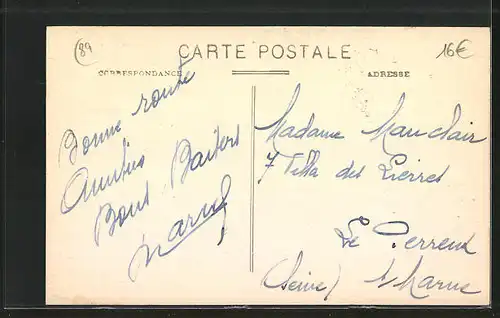 89
CARTE POSTALE
16€
CORRESPONDANCE
ADRESSE
Bonne route
Amitiés
Bons Baisers
Marcel
Madame Mauclair
7 Villa des Lierres
Le Perreux
(Seine) s/ Marne